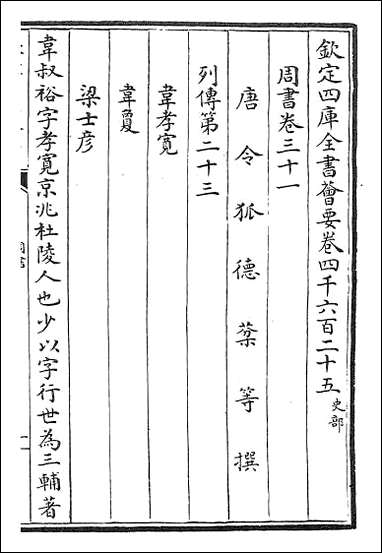 欽定四庫全書薈要卷四千六百二十五 史部
周書卷三十一
唐令狐德棻等撰
列傳第二十三
韋孝寬
韋敻
梁士彦
韋叔裕字孝寬京兆杜陵人也少以字行世為三輔著